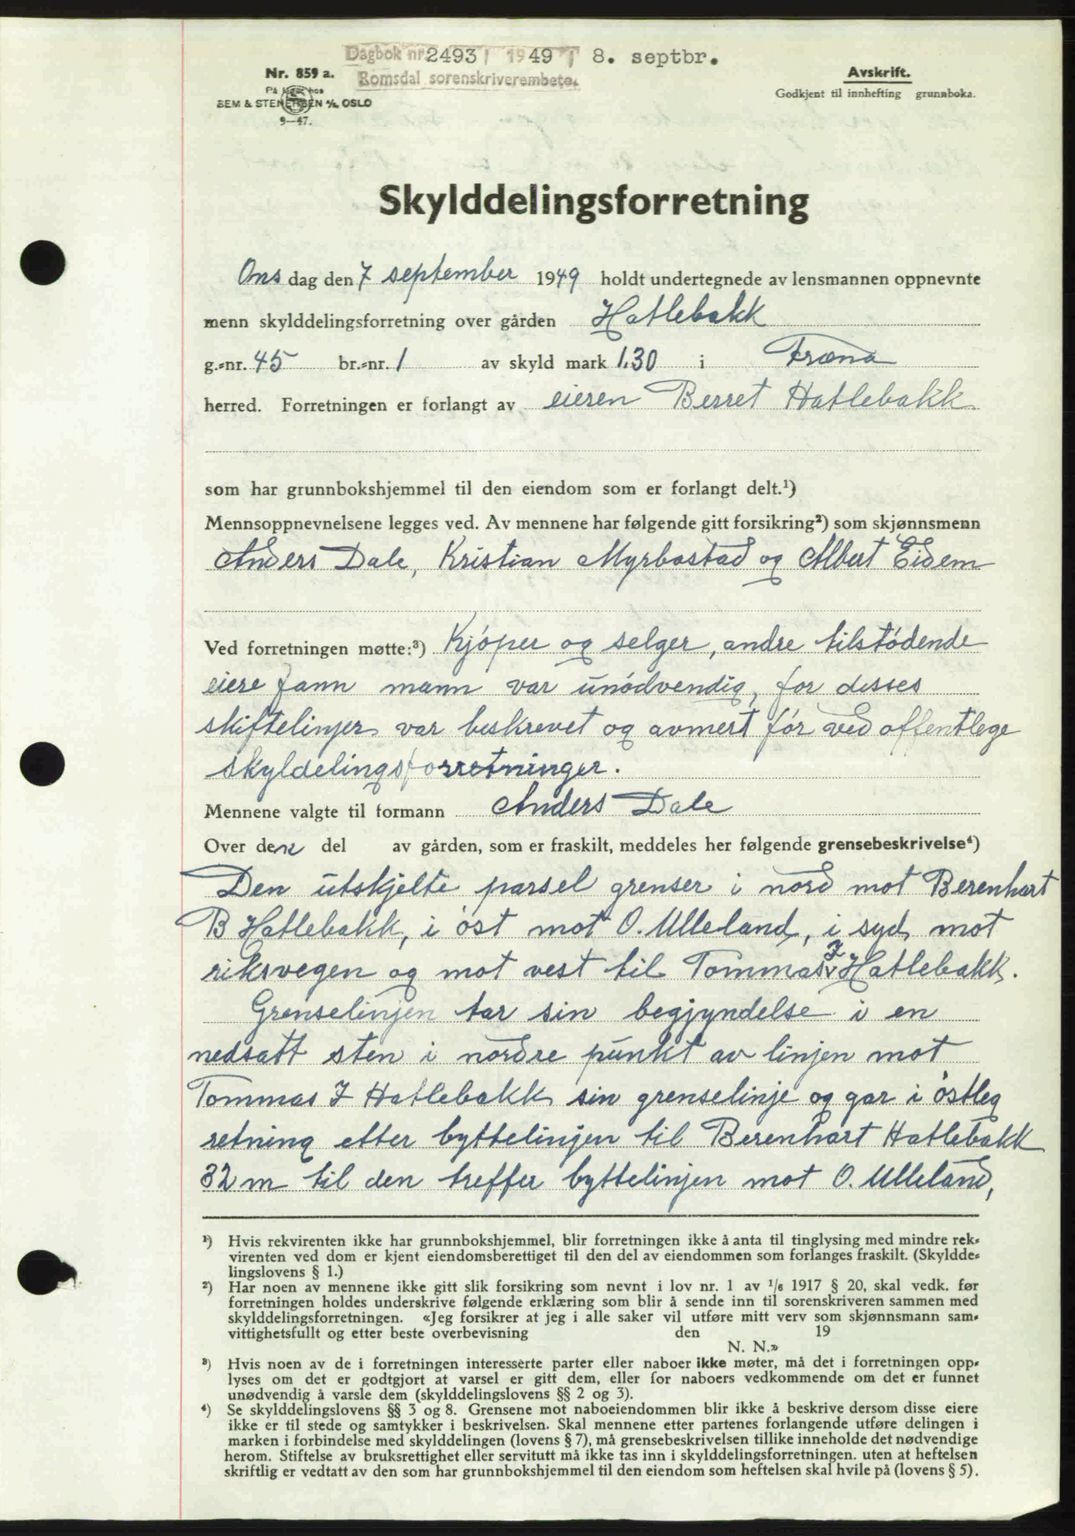 Dagbok nr 2493 / 1949 8. septbr.
Romsdal sorenskriverembete.
Nr. 859 a.
På lager hos
SEM & STENERSEN A/S, OSLO
9—47.
Avskrift.
Godkjent til innhefting grunnboka.
Skylddelingsforretning
Onsdag den 7 september 1949 holdt undertegnede av lensmannen oppnevnte
menn skylddelingsforretning over gården Hatlebakk
g.-nr. 45 br.-nr. 1 av skyld mark 1,30 i Fræna
herred. Forretningen er forlangt av eieren Berret Hatlebakk
som har grunnbokshjemmel til den eiendom som er forlangt delt.¹)
Mennsoppnevnelsene legges ved. Av mennene har følgende gitt forsikring²) som skjønnsmenn
Anders Dale, Kristian Myrbostad og Albert Eidem
Ved forretningen møtte:³) Kjöper og selger, andre tilstödende
eiere fann mann var unödvendig, for disses
skiftelinjer var beskrevet og avmert för ved offentlege
skyldelingsforretninger.
Mennene valgte til formann Anders Dale
Over den del av gården, som er fraskilt, meddeles her følgende grensebeskrivelse⁴)
Den utskjelte parsel grenser i nord mot Berenhart
B Hatlebakk, i öst mot O. Ulleland, i syd mot
riksvegen og mot vest til Tommas J Hatlebakk.
Grenselinjen tar sin begjyndelse i en
nedsatt sten i nordre punkt av linjen mot
Tommas J Hatlebakk sin grenselinje og gar i östleg
retning etter byttelinjen til Berenhart Hatlebakk
32 m til den treffer byttelinjen mot O. Ulleland,
¹) Hvis rekvirenten ikke har grunnbokshjemmel, blir forretningen ikke å anta til tinglysing med mindre rek-
virenten ved dom er kjent eiendomsberettiget til den del av eiendommen som forlanges fraskilt. (Skyldde-
lingslovens § 1.)
²) Har noen av mennene ikke gitt slik forsikring som nevnt i lov nr. 1 av 1/6 1917 § 20, skal vedk. før
forretningen holdes underskrive følgende erklæring som blir å sende inn til sorenskriveren sammen med
skylddelingsforretningen. «Jeg forsikrer at jeg i alle saker vil utføre mitt verv som skjønnsmann sam-
vittighetsfullt og etter beste overbevisning den 19
N. N.»
³) Hvis noen av de i forretningen interesserte parter eller naboer ikke møter, må det i forretningen opp-
lyses om det er godtgjort at varsel er gitt dem, eller for naboers vedkommende om det er funnet
unødvendig å varsle dem (skylddelingslovens §§ 2 og 3).
⁴) Se skylddelingslovens §§ 3 og 8. Grensene mot naboeiendommen blir ikke å beskrive dersom disse eiere
ikke er til stede og samtykker i beskrivelsen. Skal mennene etter partenes forlangende utføre delingen i
marken i forbindelse med skylddelingen (lovens § 7), må grensebeskrivelsen tillike inneholde det nødvendige
herom. Stiftelse av bruksrettighet eller servitutt må ikke tas inn i skylddelingsforretningen. uten at heftelsen
skriftlig er vedtatt av den som har grunnbokshjemmel til den eiendom som heftelsen skal hvile på (lovens § 5).